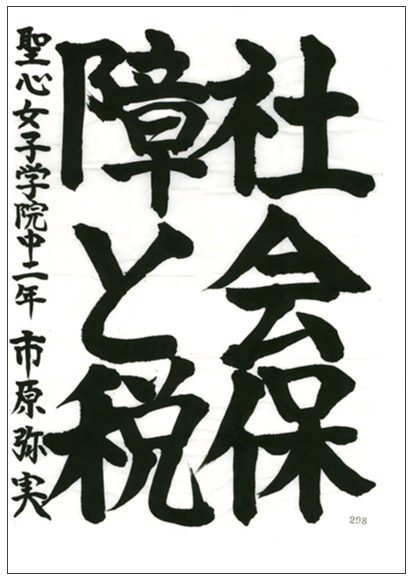 社会保
障と税
聖心女子学院中二年 市原弥実
298